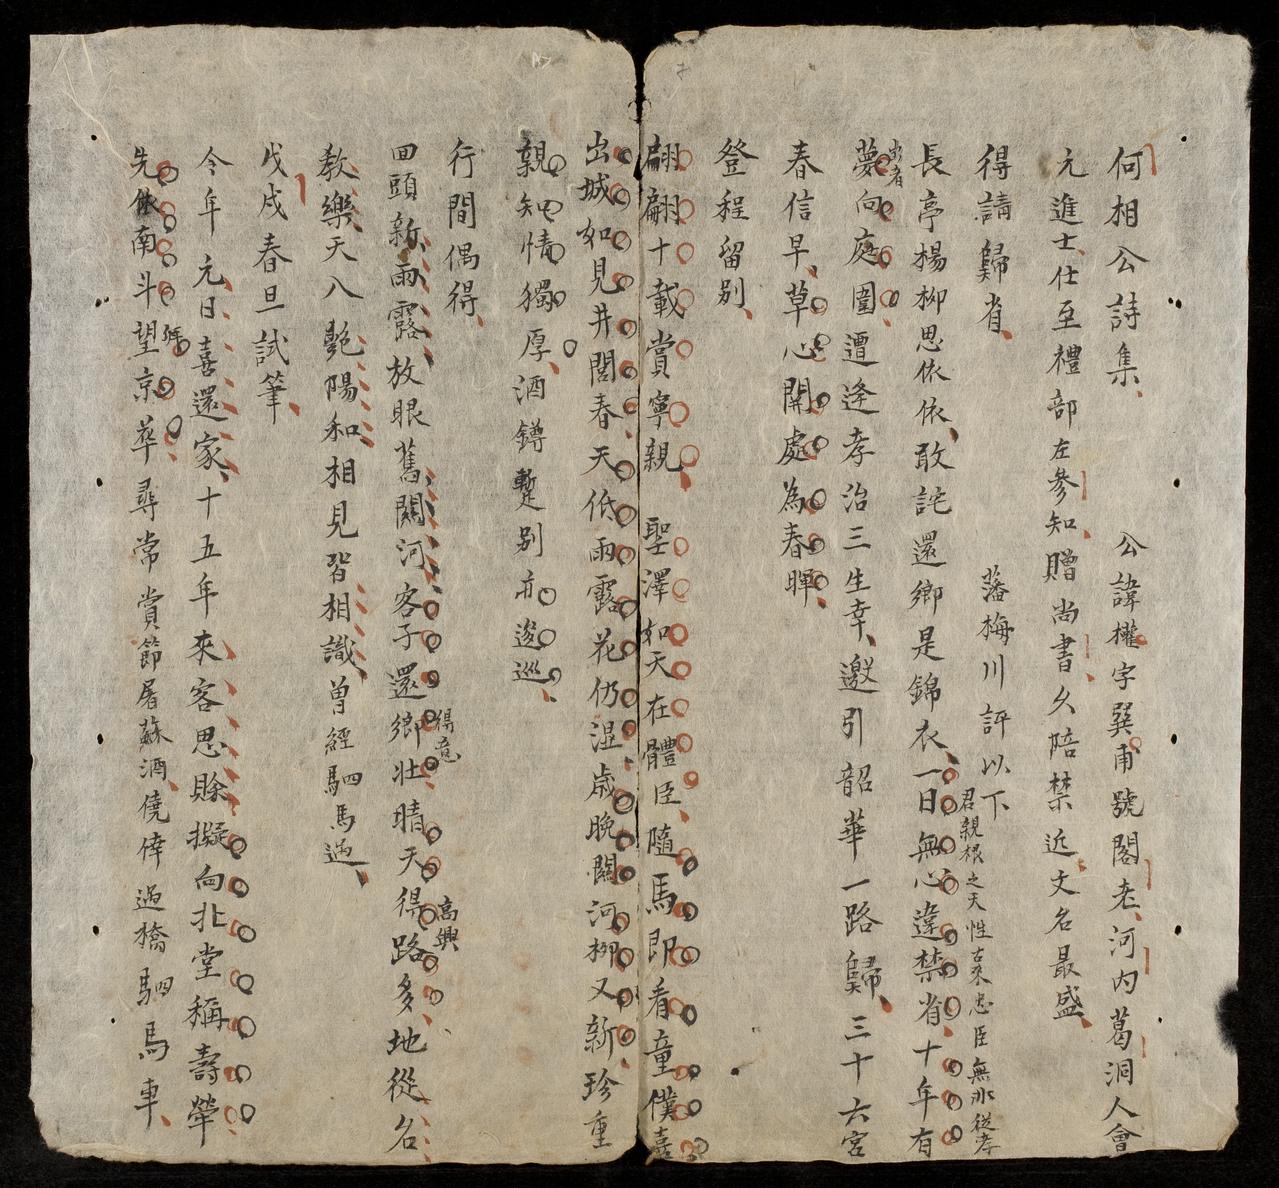 何相公詩集 公諱權字巽甫號閣老河內葛洞人會
元進士仕至禮部左參知贈尚書久陪禁近文名最盛
得請歸省 藩梅川評以下
君親根之天性古來忠臣無非從孝
長亭楊柳思依依敢詫還鄉是錦衣一日無心違禁省十年有
出者
夢向庭闈遭逢孝治三生幸邀引韶華一路歸三十六宮
春信早草心開處為春暉
登程留別
翩翩十載賞寧親 聖澤如天在體臣隨馬即看童僕喜
出城如見井閭春天低雨露花仍湿歲晚關河柳又新珍重
親知情獨厚酒罇暫別亦逡巡
行間偶得
得意
高興
回頭新雨露放眼舊關河客子還鄉壯晴天得路多地從名
教樂天入艷陽和相見皆相識曾經駟馬過
戊戌春旦試筆
今年元日喜還家十五年來客思賒擬向北堂稱壽犖
先依南斗望京華尋常賞節屠蘇酒僥倖過橋駟馬車